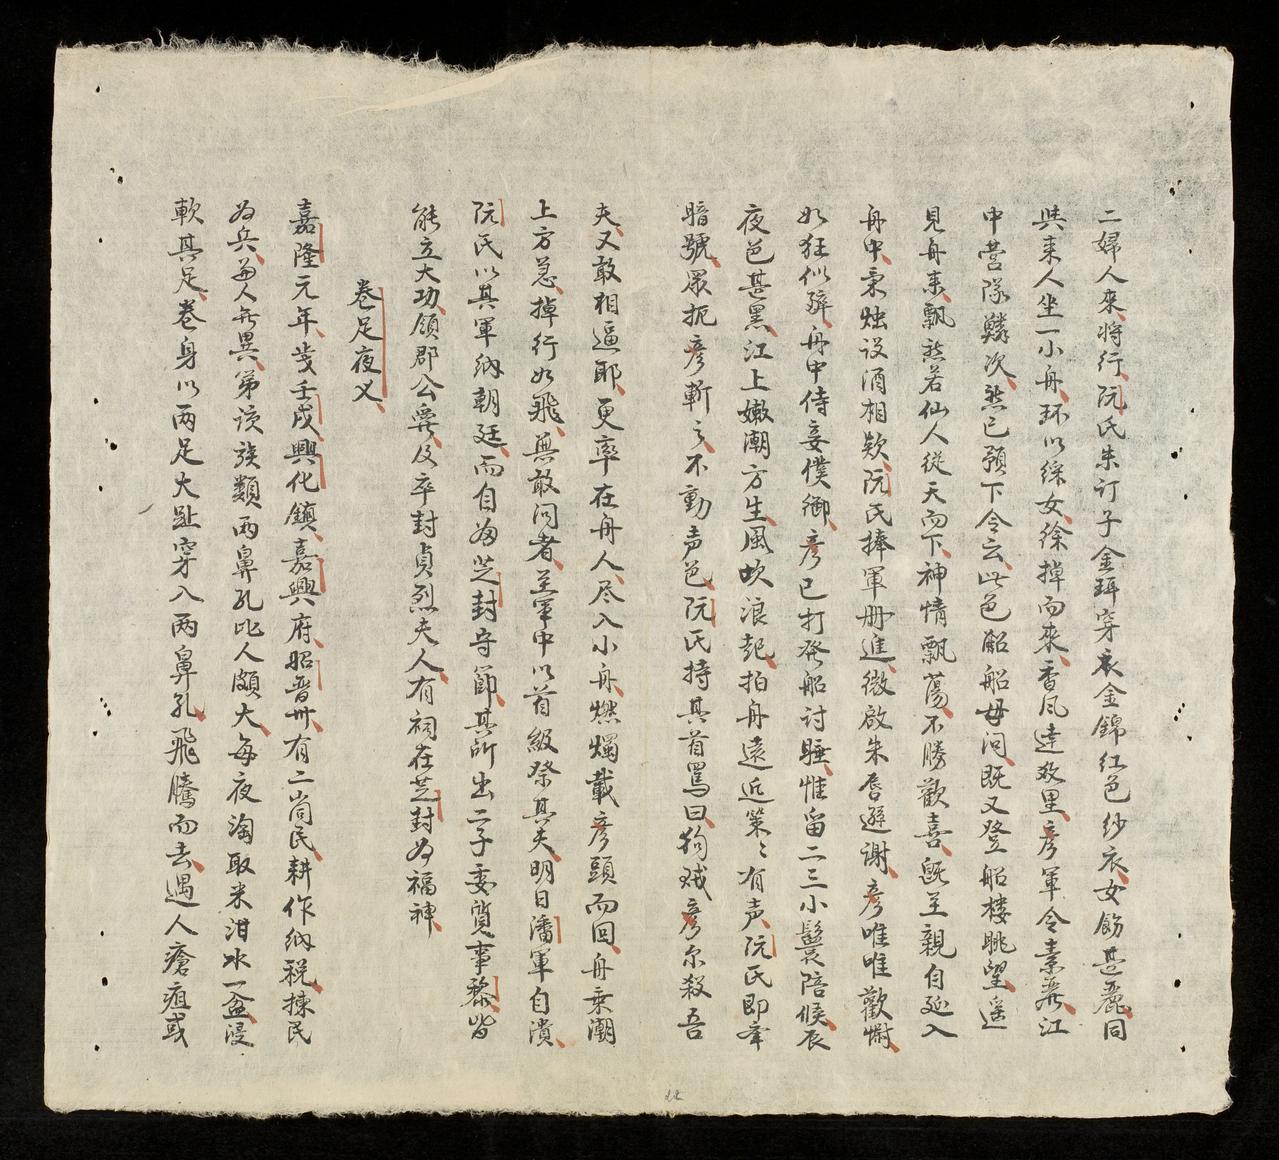 二婦人來將行阮氏朱订子金珥穿衣金錦紅色纱衣女飭甚麗同
與来人坐一小舟环以綵女徐掉而來香风達数里彦軍令素嚴江
中营隊鱗次然已預下令云此色船船毋问既又登船楼眺望遥
見舟来飘然若仙人從天而下神情飘蕩不勝歡喜既至親自延入
舟中秉烛设酒相欵阮氏捧軍册進微啟朱唇遜謝彦唯唯歡懒
如狂似碎舟中侍妾僕御彦已打發船討睡惟留二三小鬟陪候辰
夜色甚黑江上嫩潮方生風吹浪起拍舟遠近策〻有声阮氏即牵
暗號眾扼彦斬之不動声色阮氏持其首罵曰狗贼彦尔殺吾
夫又敢相逼耶更率在舟人尽入小舟燃燭載彦頭而回舟乗潮
上方急掉行如飛無敢问者至軍中以首級祭其夫明日潘軍自潰
阮氏以其軍納朝廷而自为芝封守節其所出二子委質事黎皆
能立大功領郡公爵及卒封貞烈夫人有祠在芝封为福神
卷足夜乂
嘉隆元年歲壬戌興化鎮嘉興府昭晋州有二峝民耕作納税揀民
为兵為人無異第该族類两鼻孔比人頗大每夜淘取米泔水一盆浸
軟其足卷身以两足大趾穿入两鼻孔飛騰而去遇人瘡疽或